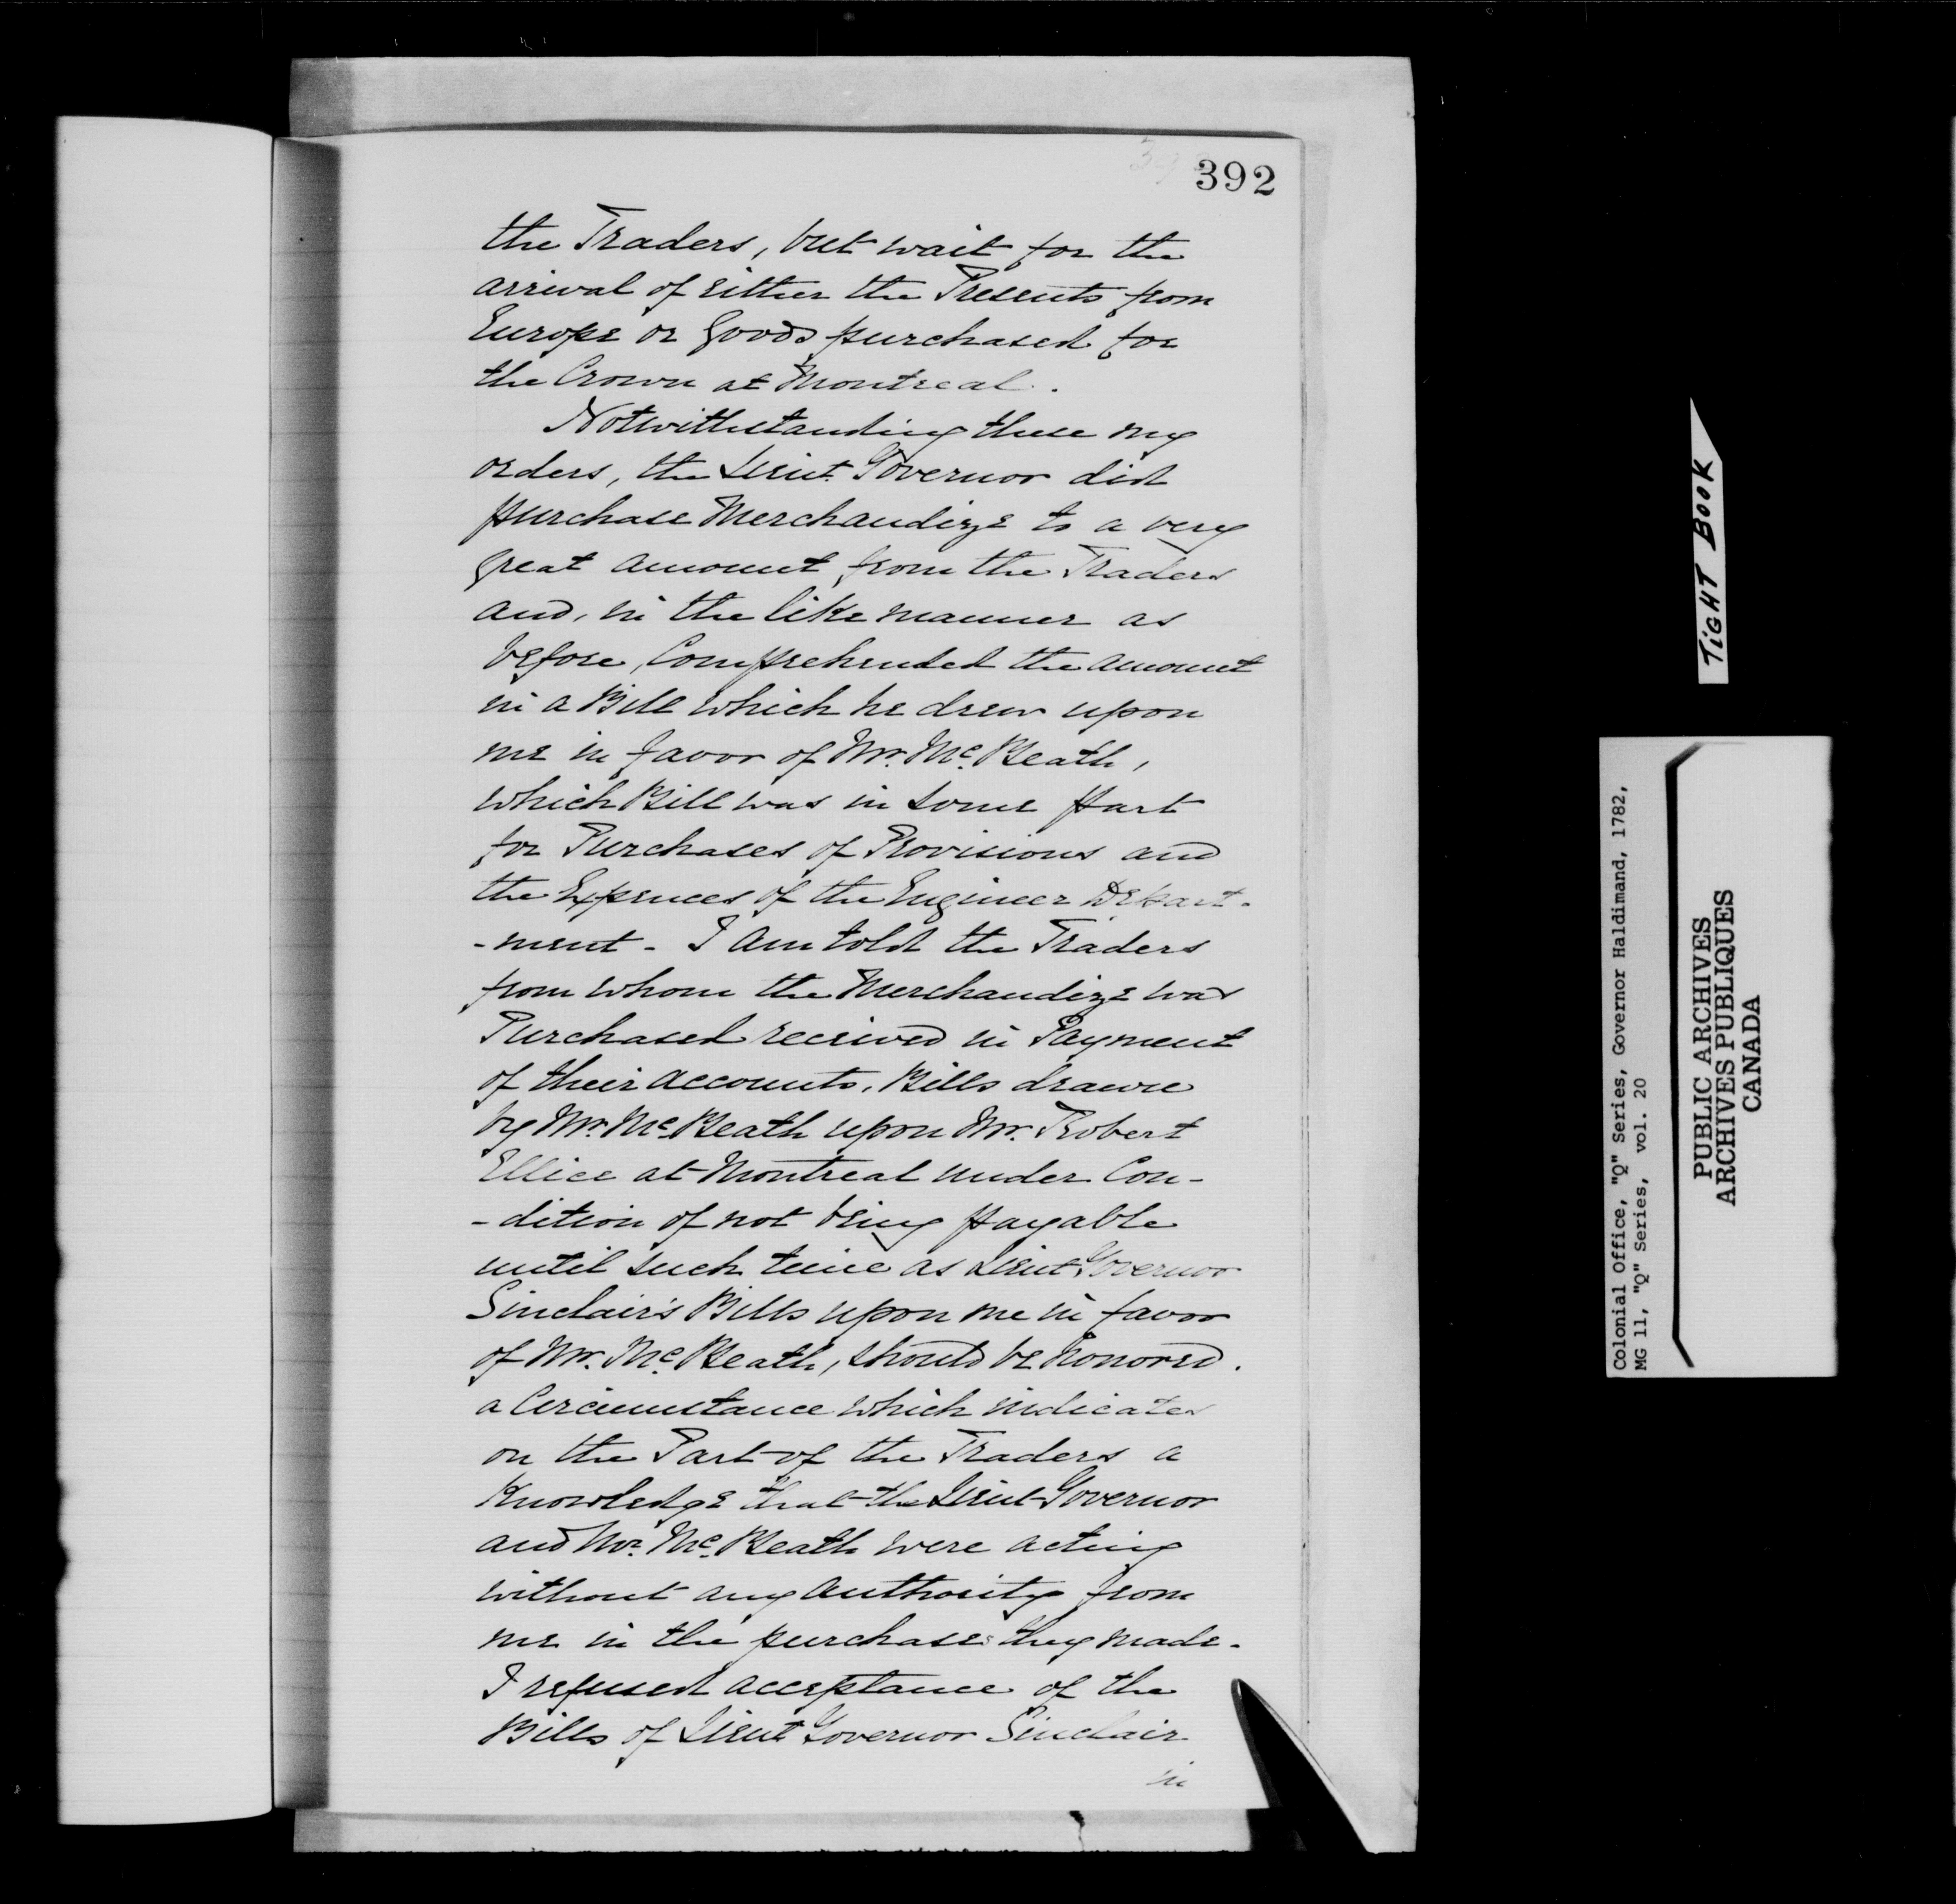 392
the Traders, but wait for the
arrival of either the Presents from
Europe or Goods purchased for
the Crown at Montreal.
Notwithstanding these my
orders, the Lieut. Governor did
purchase Merchandize to a very
great amount from the Traders
and, in the like manner as
before, Comprehended the amount
in a Bill which he drew upon
me in favor of Mr. Mc.Beath,
which Bill was in some part
for Purchases of Provisions and
the Expences of the Engineer Depart-
-ment - I am told the Traders
from whom the Merchandize was
Purchased received in Payment
of their accounts, Bills drawn
by Mr. Mc.Beath upon Mr. Robert
Ellice at Montreal under Con-
-dition of not being payable
until such time as Lieut Governor
Sinclair's Bills upon me in favor
of Mr. Mc.Beath, should be honored.
a Circumstance which indicates
on the Part of the Traders a
Knowledge that the Lieut Governor
and Mr. Mc.Beath were acting
without any authority from
me in the purchases they made.
I refused acceptance of the
Bills of Lieut Governor Sinclair
in
TiGHT BOOK
Colonial Office, "Q" Series, Governor Haldimand, 1782,
MG 11, "Q" Series, vol. 20
PUBLIC ARCHIVES
ARCHIVES PUBLIQUES
CANADA